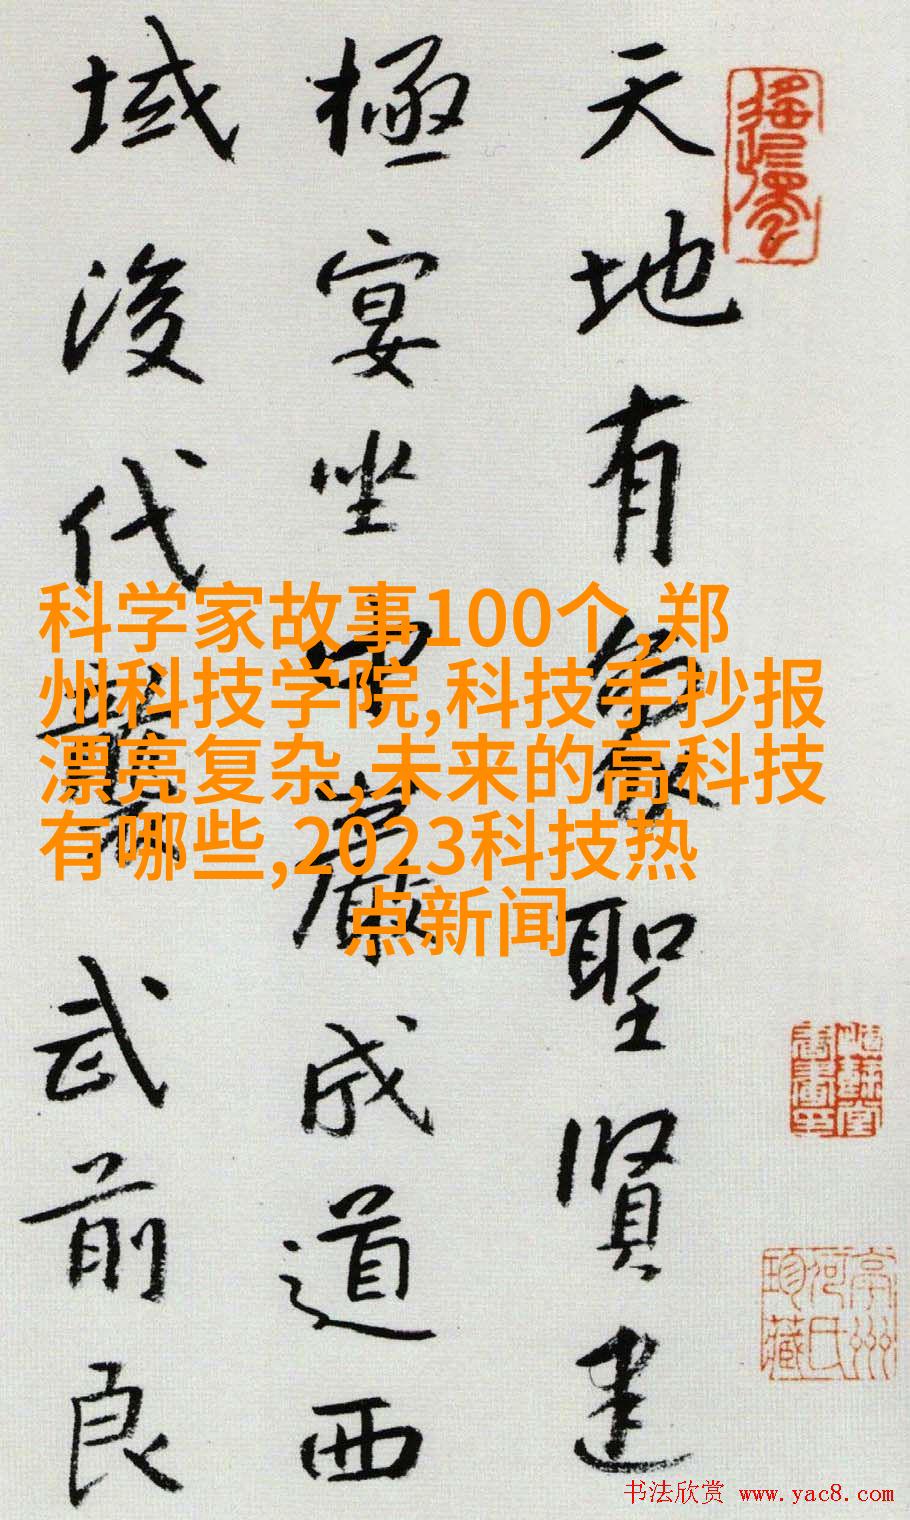 天地有象聖賢建
極宴坐中巖成道西
域後代襲武前良
科学家故事100个,郑
州科技学院,科技手抄报
漂亮复杂,未来的高科技
有哪些,2023科技热
点新闻
书法欣赏 www.yac8.com